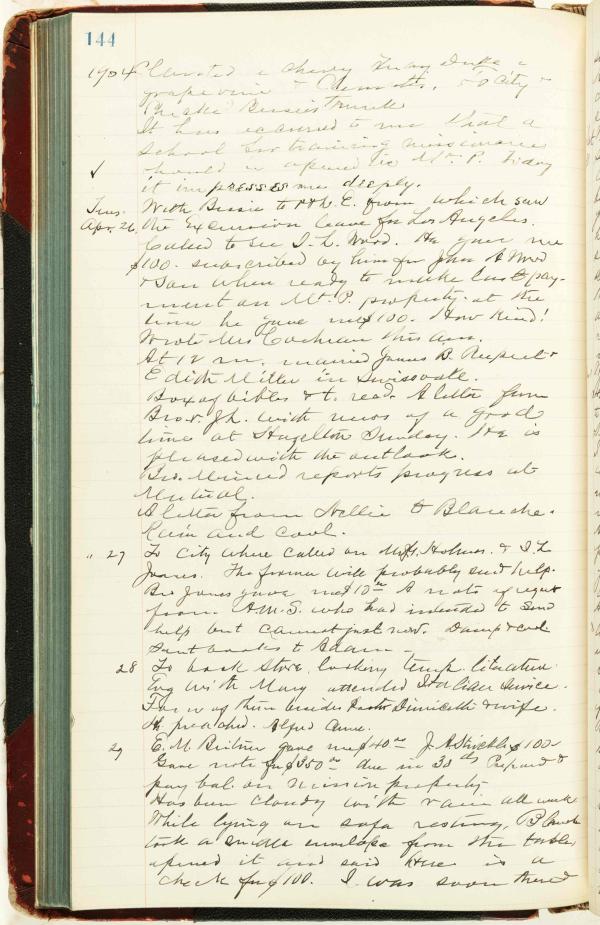 144
1904 a cherry tree
grapevine & Clematis. to City &
Bessie's trunk
It has occurred to me that a
school for training missionaries
should be opened in Mt. P. Today
✓ it impresses me deeply.
Tues. With Bessie to from which saw
Apr. 26. the Excursion leave for Los Angeles.
Called to see I. L. Wood. He gave me
$100. subscribed by him for John A Wood
& Son when ready to make last pay-
ment on Mt. P. property. at the
time he gave me $100. How kind!
Wrote Mrs Cochran this am.
At 12 m. married James B. Rupert &
Edith Miller in Swissvale.
Box of bibles & t. read. A letter from
Bro. with news of a good
time at Sunday. He is
pleased with the outlook.
Bro. reports progress at
Mutual.
A letter from Nellie to Blanche.
Rain and cool.
" 27 To City where called on Holmes. & I. L
Jones. The former will probably send help.
Bro Jones gave me $10.00 A note of regret
from A.M.S. who had intended to send
help but cannot just now. Damp & cool
Sent books to Adam
28 To book store, looking temp. literature.
Evg with Mary attended Italian service.
Few of them besides Pastor & wife.
H. preached.
29 E. M. gave me $40.00 $100.
Gave note for $350.00 due in 30 ds Prepared to
pay bal. on mission property
Has been cloudy with rain all week
While lying on sofa resting, Blanch
took a small envelope from the table,
opened it and said Here is a
check for $100. I was soon there